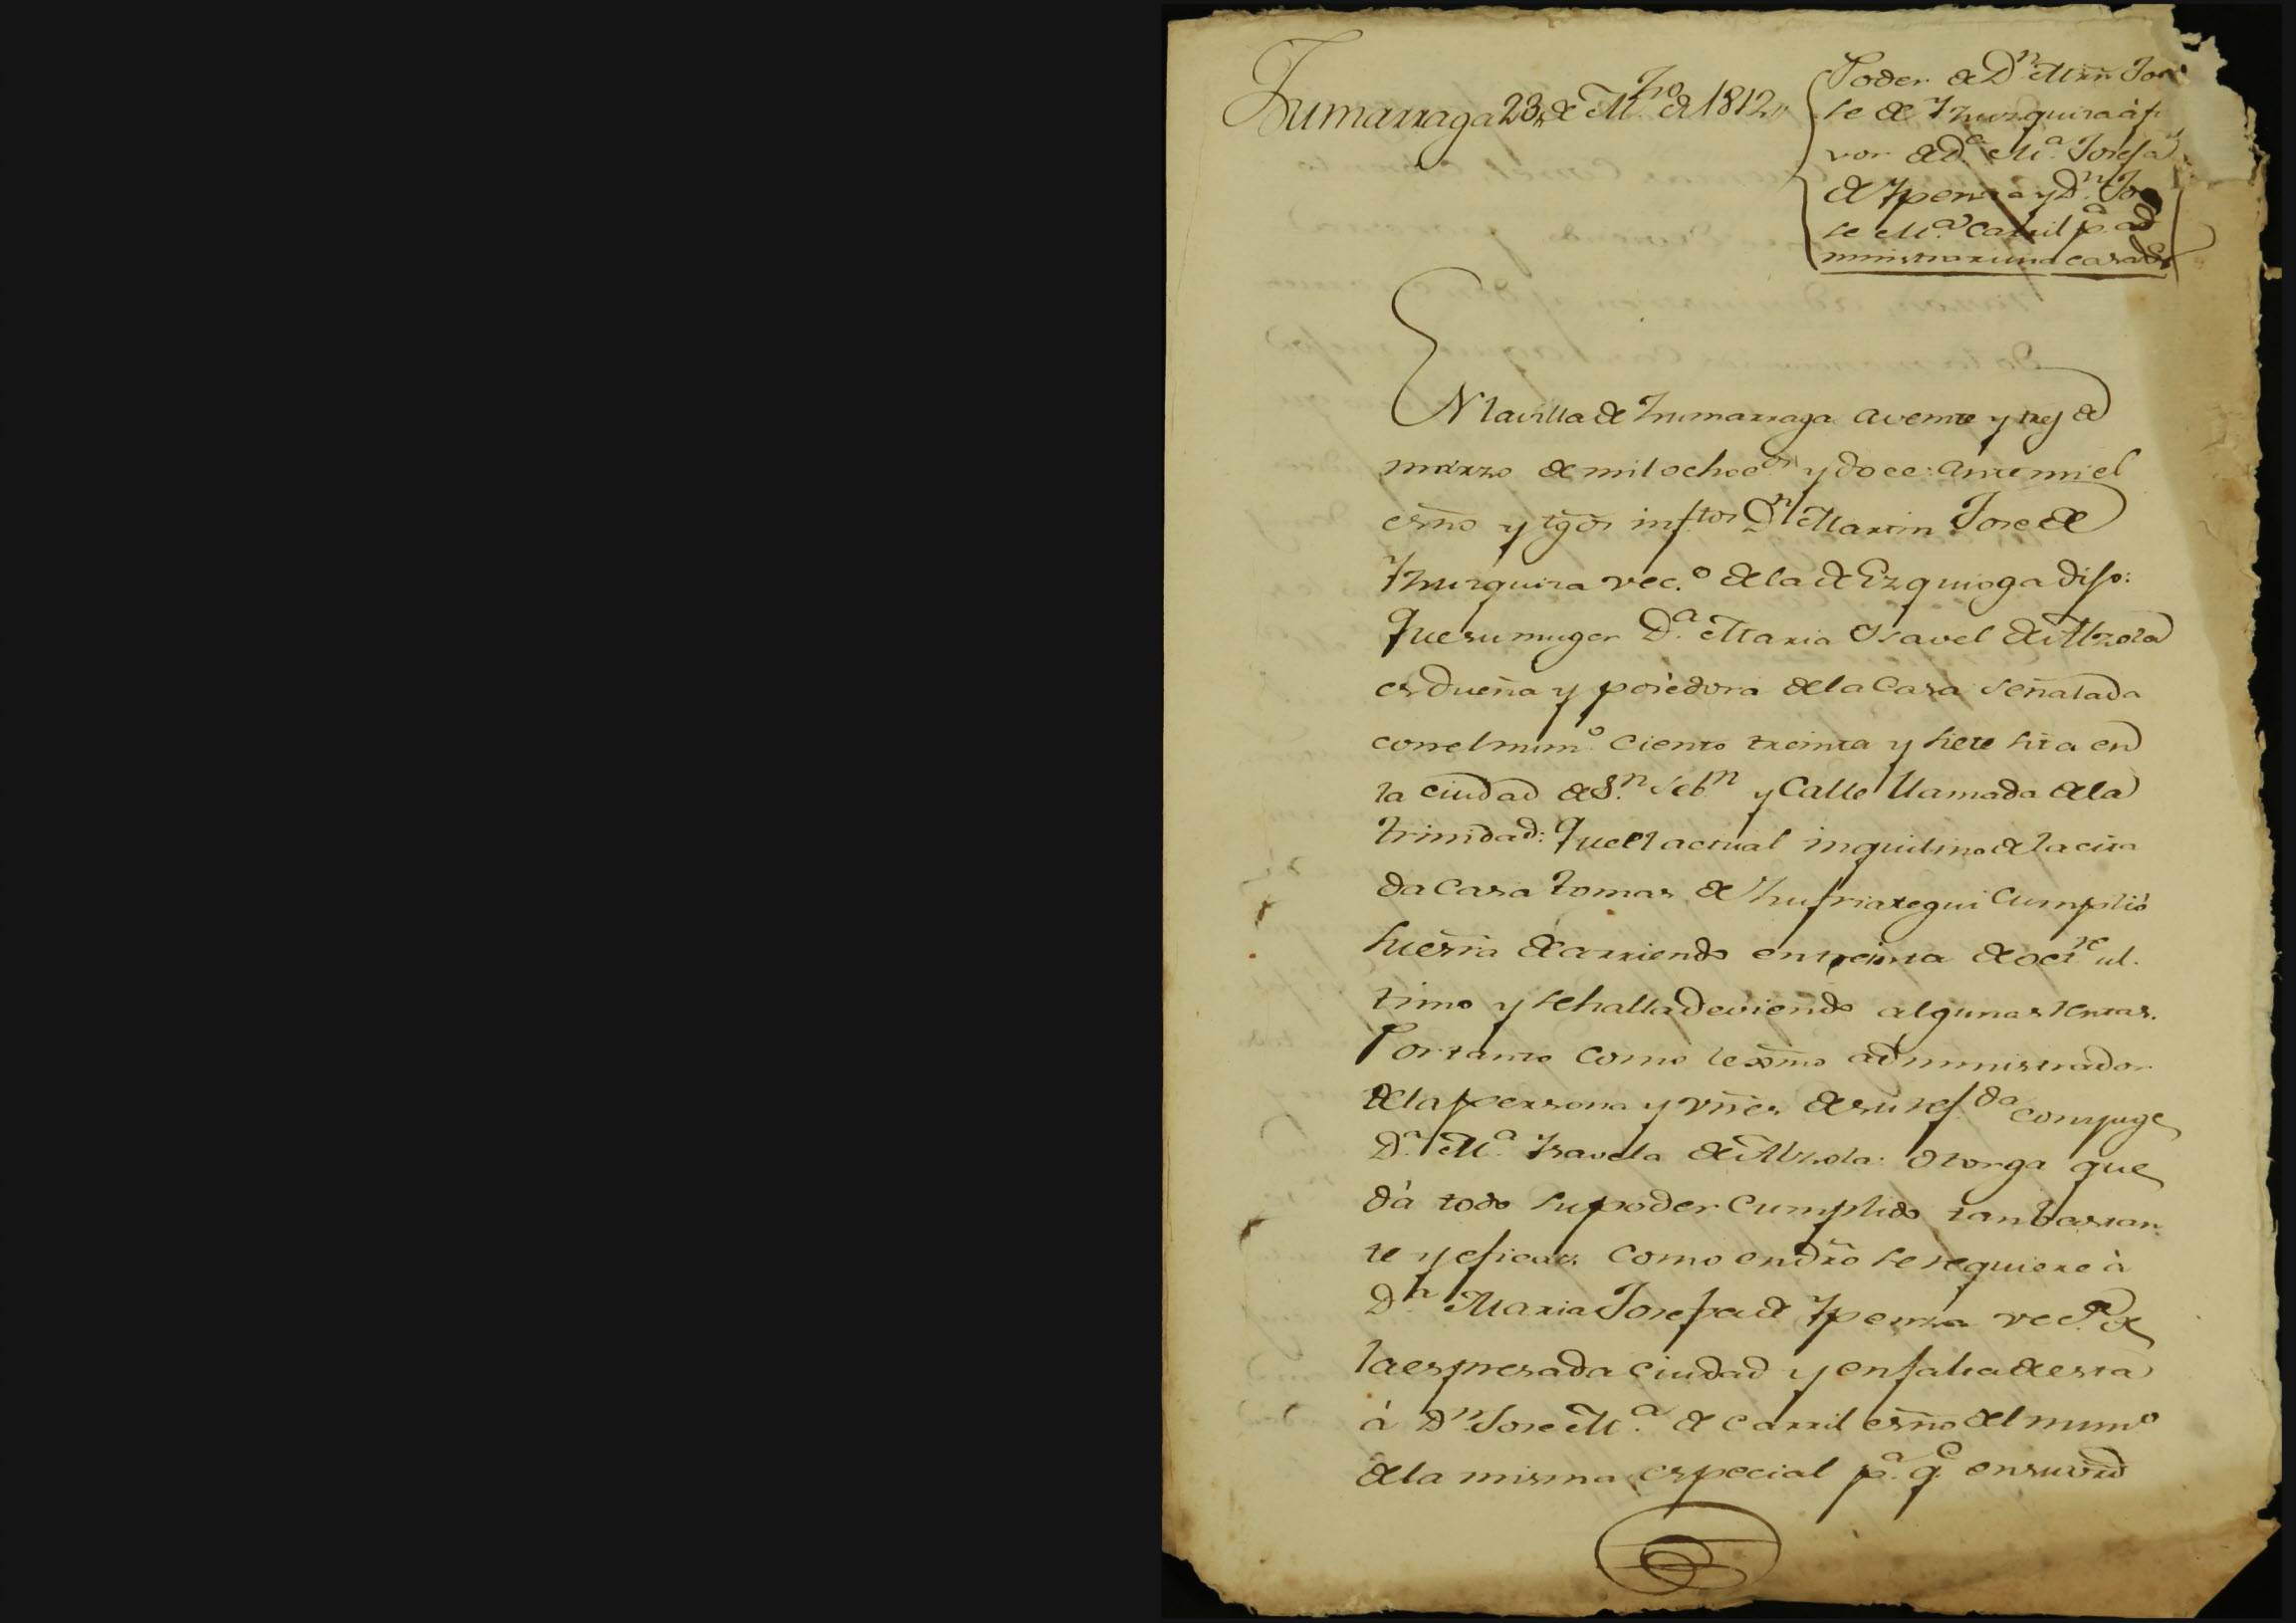 Zumarraga 23,, de M.zo de 1812,,
Poder de Dn. Mrñ Jo
se de Yzuzquiza á fa
vor de D.a M.a Josefa
de Ypenza y Dn. Jo
se M.a Carril p.a ad
ministrar una casa de
EN la villa de Zumarraga a veinte y tres de
marzo de mil ochoc.os y doce: Ante mi el
esño y tg̃os infrtos Dn. Martin Jose de
Yzuzquiza vec.o de la de Ezquioga dijo:
Que su muger D.a Maria Isavel de Alzola
es dueña y poseèdora de la Casa señalada
con el num.o ciento treinta y siete sita en
la ciudad de S.n Seb.n y Calle llamada de la
Trinidad: Que el actual inquilino de la cita
da Casa Tomas de Zufriategui cumplió
su esr̃ra de arriendo en treinta de oct.re ul-
timo y se halla deviendo algunas rentas.
Por tanto como lexmo administrador
de la persona y vñes de su ref.da conyuge
D.a M.a Isavela de Alzola: Otorga que
dá todo su poder cumplido tan bastan-
te y eficaz como en dr̃o se requiere á
D.a Maria Josefa de Ypenza vec.a de
la espresada ciudad y en falta de esta
á Dn. Jose M.a de Carril esño del num.o
de la misma especial p.a q.e en su vrd